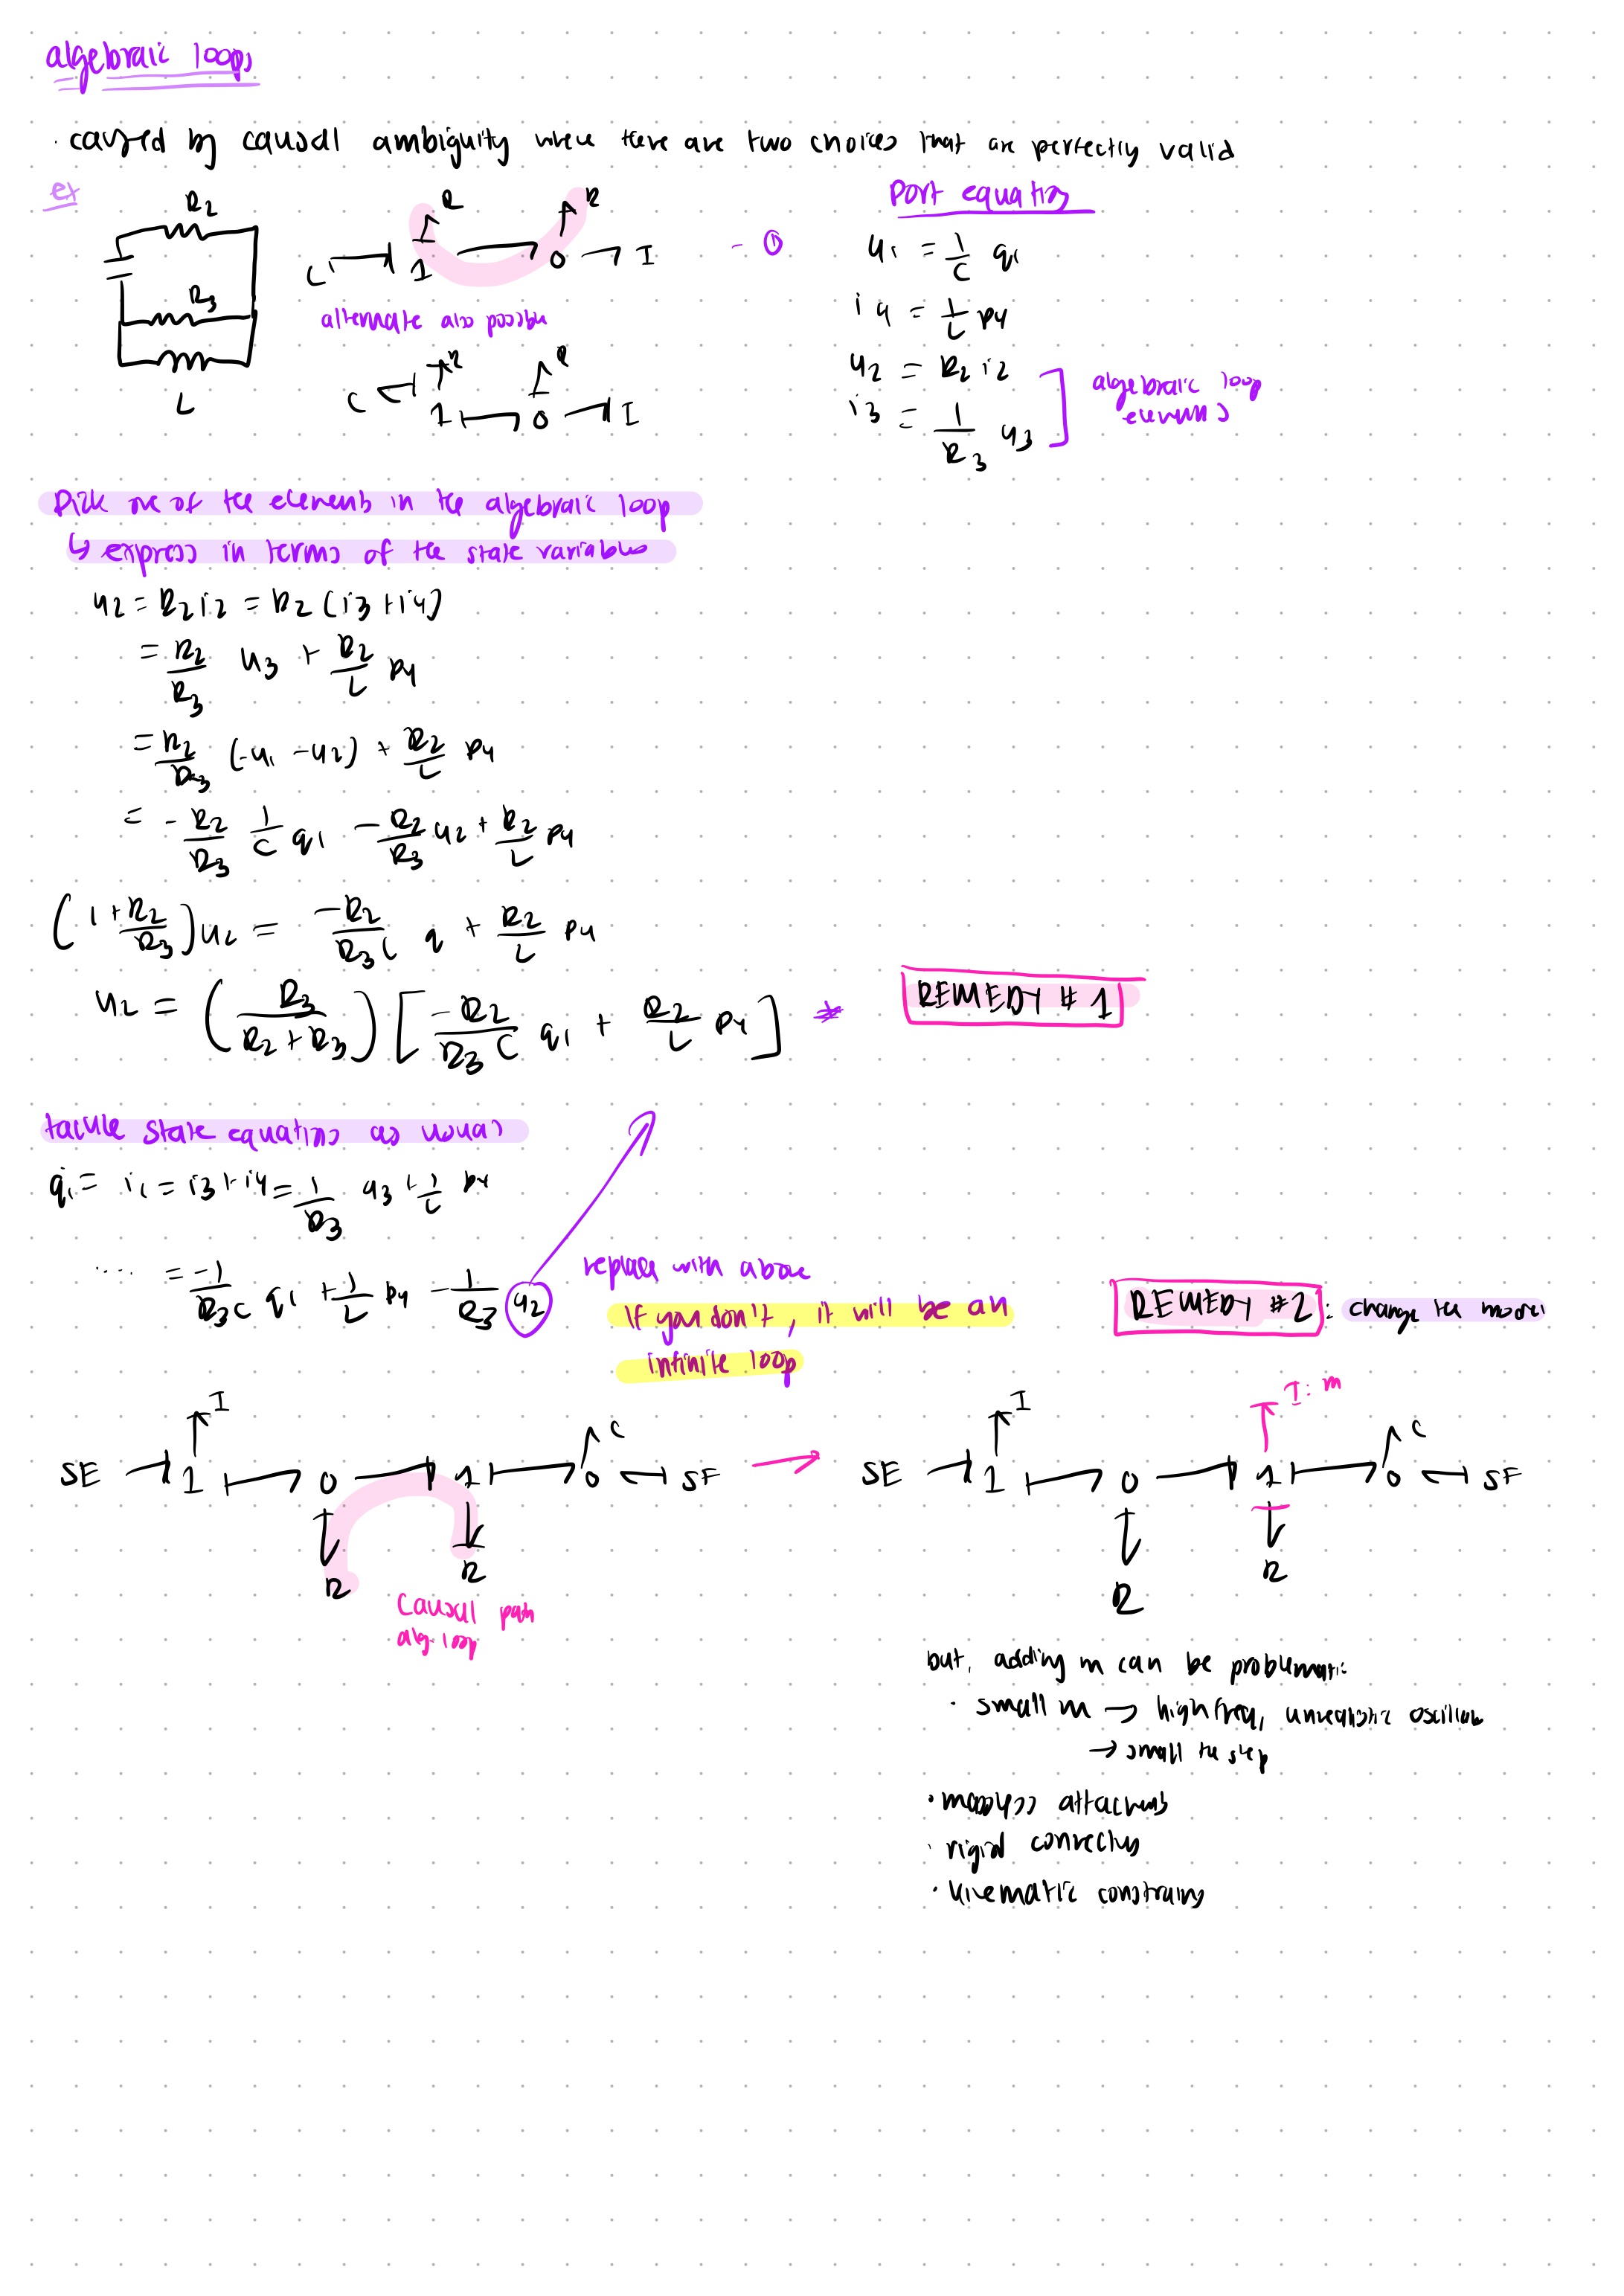 algebraic loops
· caused by causal ambiguity where there are two choices that are perfectly valid
ex
R2
R3
L
C 1 R 0 R I - ①
alternate also possible
C 1 R 0 R I
Port equations
u1 = 1/C q1
i4 = 1/L p4
u2 = R2 i2
i3 = 1/R3 u3
algebraic loop
elements
Pick one of the elements in the algebraic loop
↳ express in terms of the state variables
u2 = R2 i2 = R2 (i3 + i4)
= R2/R3 u3 + R2/L p4
= R2/R3 (-u1 - u2) + R2/L p4
= - R2/R3 1/C q1 - R2/R3 u2 + R2/L p4
(1 + R2/R3) u2 = -R2/R3C q + R2/L p4
u2 = (R3/R2+R3) [-R2/R3C q1 + R2/L p4] *
REMEDY #1
tackle state equations as usual
q̇1 = i1 = i3 + i4 = 1/R3 u3 + 1/L p4
.... = -1/R3C q1 + 1/L p4 - 1/R3 u2
replace with above
If you don't, it will be an
infinite loop
REMEDY #2 : change the model
SE 1 I 0 R 1 R 0 C SF
causal path
alg. loop
→
SE 1 I 0 R 1 I: m R 0 C SF
but, adding m can be problematic
· small m → high freq, unrealistic oscillations
→ small step
· massless attachments
· rigid
· kinematic constraints